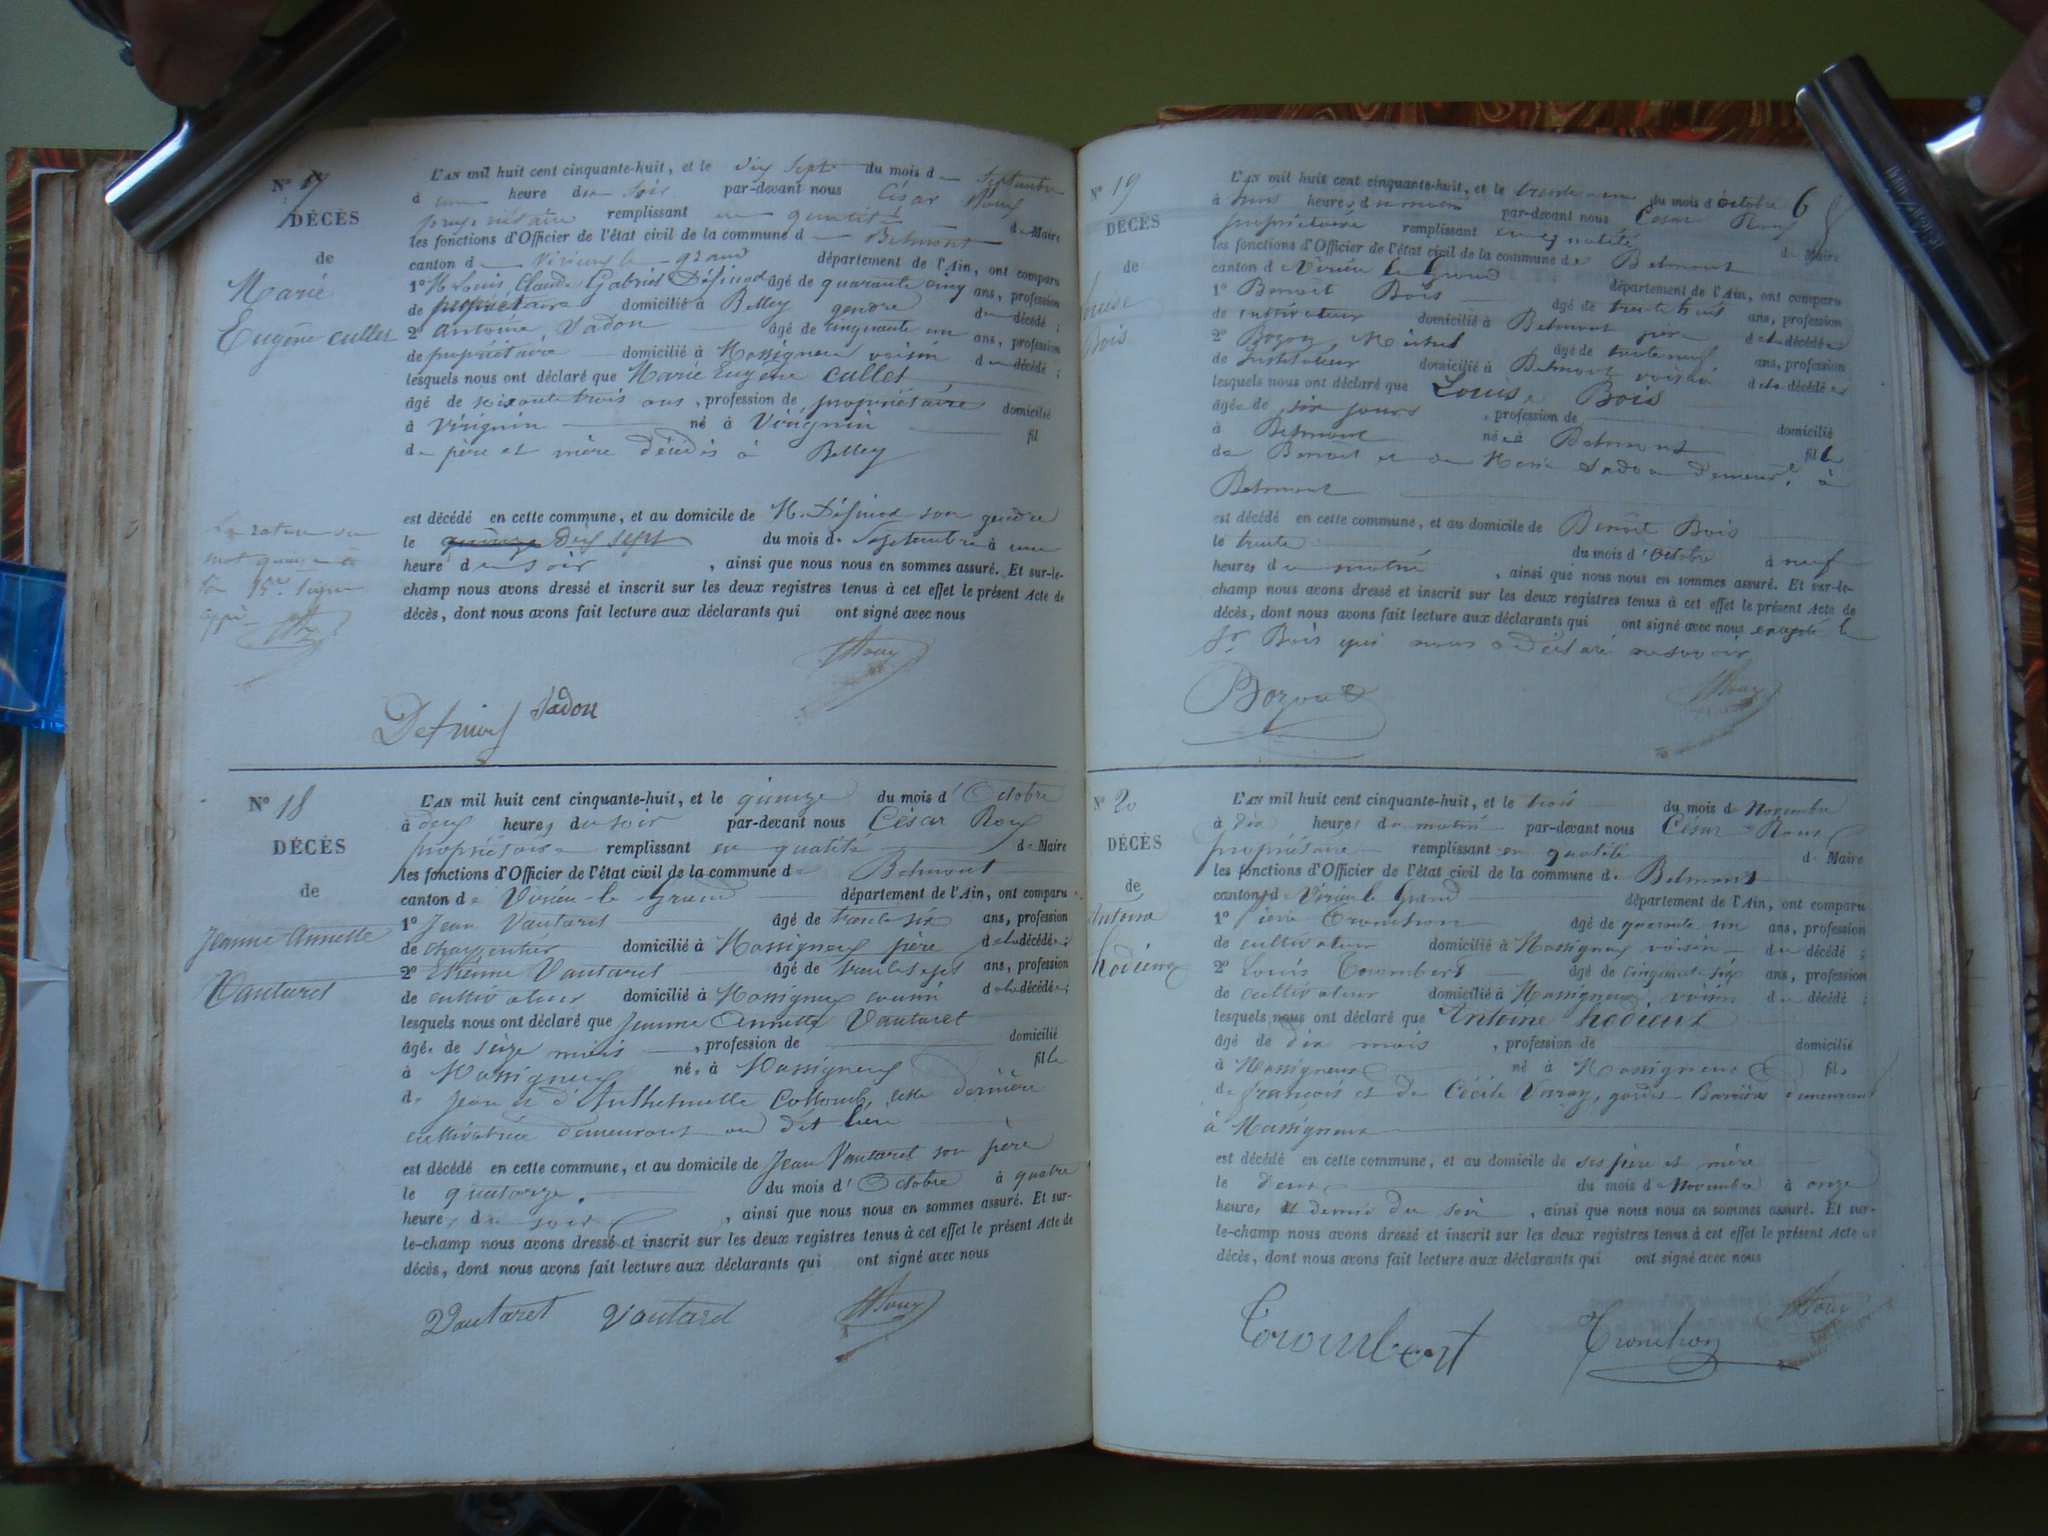 N° 17
DÉCÈS
de
Marie
Eugène Cullet
L'AN mil huit cent cinquante-huit, et le dix sept du mois de Septembre
à une heure du soir par-devant nous César Roux
propriétaire remplissant en qualité de Maire
les fonctions d'Officier de l'état civil de la commune de Belmont
canton de Virieu le grand département de l'Ain, ont comparu
1° M. Louis Claude Gabriel âgé de quarante cinq ans, profession
de propriétaire domicilié à Belley gendre du décédé ;
2° Antoine Vadon âgé de cinquante un ans, profession
de propriétaire domicilié à Massigneu voisin du décédé ;
lesquels nous ont déclaré que Marie Eugène Cullet
âgé de soixante trois ans, profession de propriétaire domicilié
à Virignin né à Virignin fil
de père et mère décédés à Belley
est décédé en cette commune, et au domicile de M. son gendre
le quinze dix sept du mois de Septembre à une
heure du soir, ainsi que nous nous en sommes assuré. Et sur-le-
champ nous avons dressé et inscrit sur les deux registres tenus à cet effet le présent Acte de
décès, dont nous avons fait lecture aux déclarants qui ont signé avec nous
La rature du
mot quinze à
la 15me ligne
appr.
Roux
Vadon
N° 18
DÉCÈS
de
Jeanne Annette
Vautaret
L'AN mil huit cent cinquante-huit, et le quinze du mois d'Octobre
à deux heures du soir par-devant nous César Roux
propriétaire remplissant en qualité de Maire
les fonctions d'Officier de l'état civil de la commune de Belmont
canton de Virieu-le-Grand département de l'Ain, ont comparu
1° Jean Vautaret âgé de trente six ans, profession
de charpentier domicilié à Massigneux père de la décédée ;
2° Etienne Vautaret âgé de trente sept ans, profession
de cultivateur domicilié à Massigneux cousin de la décédée ;
lesquels nous ont déclaré que Jeanne Annette Vautaret
âgée de seize mois, profession de domicilié
à Massigneux née à Massigneux fille
de Jean et d'Anthelmette Collomb, cette dernière
cultivatrice demeurant au dit lieu
est décédé en cette commune, et au domicile de Jean Vautaret son père
le quatorze du mois d'Octobre à quatre
heures du soir, ainsi que nous nous en sommes assuré. Et sur-
le-champ nous avons dressé et inscrit sur les deux registres tenus à cet effet le présent Acte de
décès, dont nous avons fait lecture aux déclarants qui ont signé avec nous
Vautaret Vautaret Roux
N° 19
DÉCÈS
de
Louise
Bois
6
L'AN mil huit cent cinquante-huit, et le trente un du mois d'Octobre
à trois heures du par-devant nous César Roux
propriétaire remplissant en qualité de Maire
les fonctions d'Officier de l'état civil de la commune de Belmont
canton de Virieu le Grand département de l'Ain, ont comparu
1° Benoit Bois âgé de trente huit ans, profession
de cultivateur domicilié à Belmont père de la décédée ;
2° Bozon Michel âgé de trente neuf ans, profession
de Instituteur domicilié à Belmont voisin de la décédée
lesquels nous ont déclaré que Louise Bois
âgée de six jours, profession de domicilié
à Belmont née à Belmont fille
de Benoit et de Marie Vadon demeurt à
Belmont
est décédé en cette commune, et au domicile de Benoît Bois
le trente du mois d'Octobre à neuf
heures du matin, ainsi que nous nous en sommes assuré. Et sur-le-
champ nous avons dressé et inscrit sur les deux registres tenus à cet effet le présent Acte de
décès, dont nous avons fait lecture aux déclarants qui ont signé avec nous excepté le
Sr Bois qui nous a déclaré ne savoir
Bozon Roux
N° 20
DÉCÈS
de
Antoine
hodieux
L'AN mil huit cent cinquante-huit, et le trois du mois de Novembre
à dix heures du matin par-devant nous César Roux
propriétaire remplissant en qualité de Maire
les fonctions d'Officier de l'état civil de la commune de Belmont
canton de Virieu le Grand département de l'Ain, ont comparu
1° Pierre Tronchon âgé de quarante un ans, profession
de cultivateur domicilié à Massigneux voisin du décédé ;
2° Louis Trombert âgé de cinquante six ans, profession
de cultivateur domicilié à Massigneux, voisin du décédé ;
lesquels nous ont déclaré que Antoine hodieux
âgé de dix mois, profession de domicilié
à Massigneux né à Massigneux fils
de françois et de Cécile Varray, gardes-Barrières demeurant
à Massigneux
est décédé en cette commune, et au domicile de ses père et mère
le deux du mois de Novembre à onze
heures et demie du soir, ainsi que nous nous en sommes assuré. Et sur-
le-champ nous avons dressé et inscrit sur les deux registres tenus à cet effet le présent Acte de
décès, dont nous avons fait lecture aux déclarants qui ont signé avec nous
Trombert Tronchon Roux